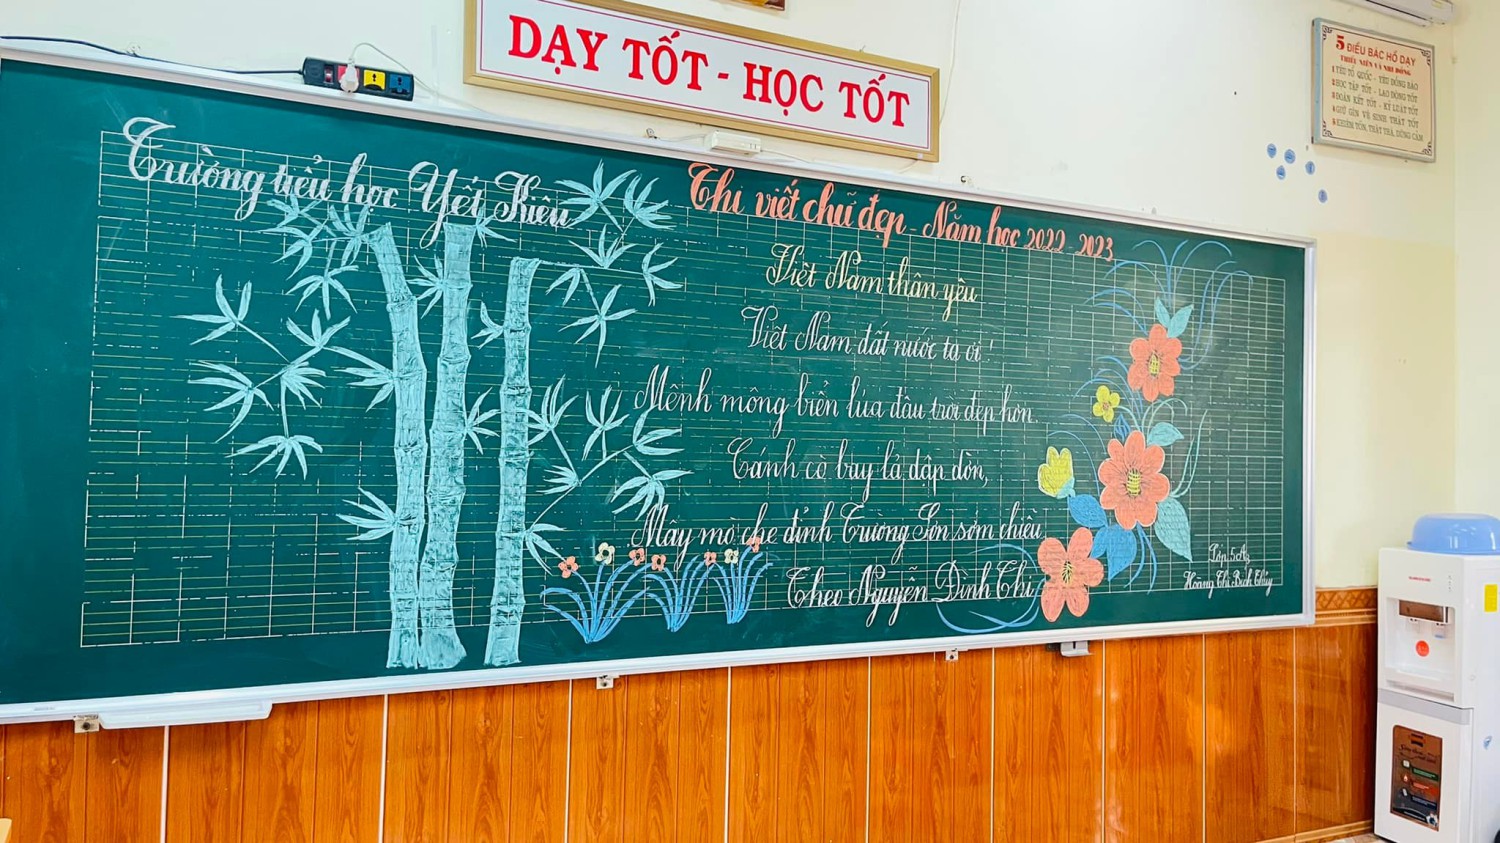 DẠY TỐT - HỌC TỐT
5 ĐIỀU BÁC HỒ DẠY
THIẾU NIÊN VÀ NHI ĐỒNG
1 YÊU TỔ QUỐC - YÊU ĐỒNG BÀO
2 HỌC TẬP TỐT - LAO ĐỘNG TỐT
3 ĐOÀN KẾT TỐT - KỶ LUẬT TỐT
4 GIỮ GÌN VỆ SINH THẬT TỐT
5 KHIÊM TỐN, THẬT THÀ, DŨNG CẢM
Trường tiểu học Yết Kiêu
Thi viết chữ đẹp - Năm học 2022 - 2023
Việt Nam thân yêu
Việt Nam đất nước ta ơi!
Mênh mông biển lúa đâu trời đẹp hơn.
Cánh cò bay lả dập dờn,
Mây mờ che đỉnh Trường Sơn sớm chiều.
Theo Nguyễn Đình Thi
Lớp 5A2
Hoàng Thị Bích Thủy